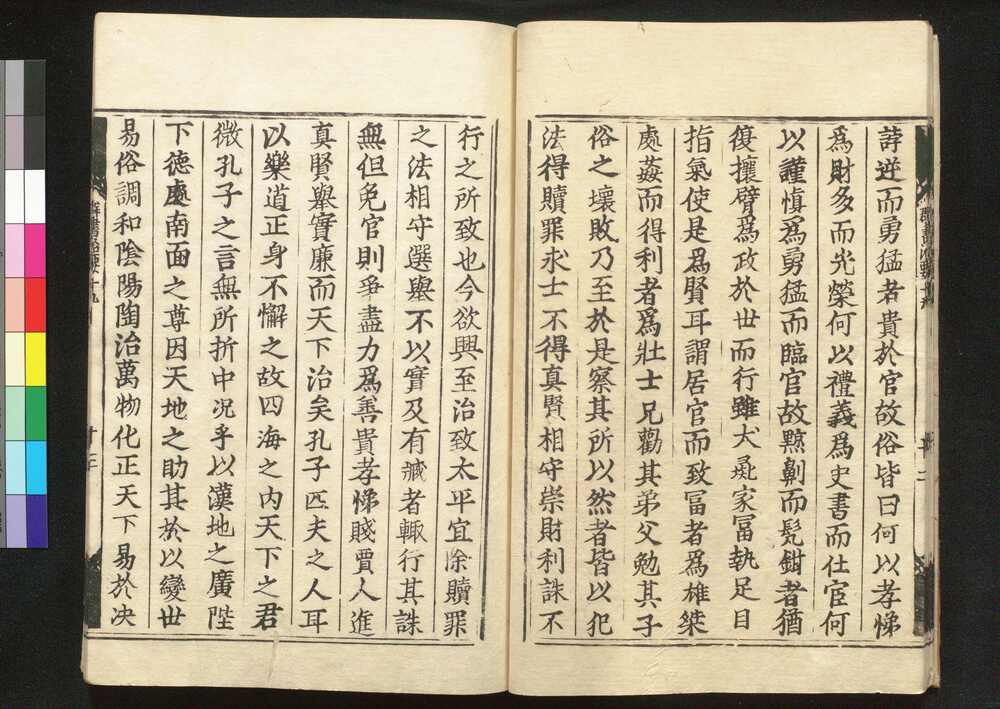 誖逆而勇猛者貴於官故俗皆曰何以孝悌
爲財多而光榮何以禮義爲史書而仕宦何
以謹慎爲勇猛而臨官故黥劓而髠鉗者猶
復攘臂爲政於世而行雖犬彘家冨執足目
指氣使是爲賢耳謂居官而致冨者爲雄桀
處姦而得利者爲壯士兄勸其弟父勉其子
俗之壞敗乃至於是察其所以然者皆以犯
法得贖罪求士不得真賢相守崇財利誅不
行之所致也今欲興至治致太平宜除贖罪
之法相守選舉不以實及有臧者輙行其誅
無但免官則爭盡力爲善貴孝悌賤賈人進
真賢舉實廉而天下治矣孔子匹夫之人耳
以樂道正身不懈之故四海之内天下之君
微孔子之言無所折中况乎以漢地之廣陛
下德處南面之尊因天地之助其於以變世
易俗調和陰陽陶治萬物化正天下易於决